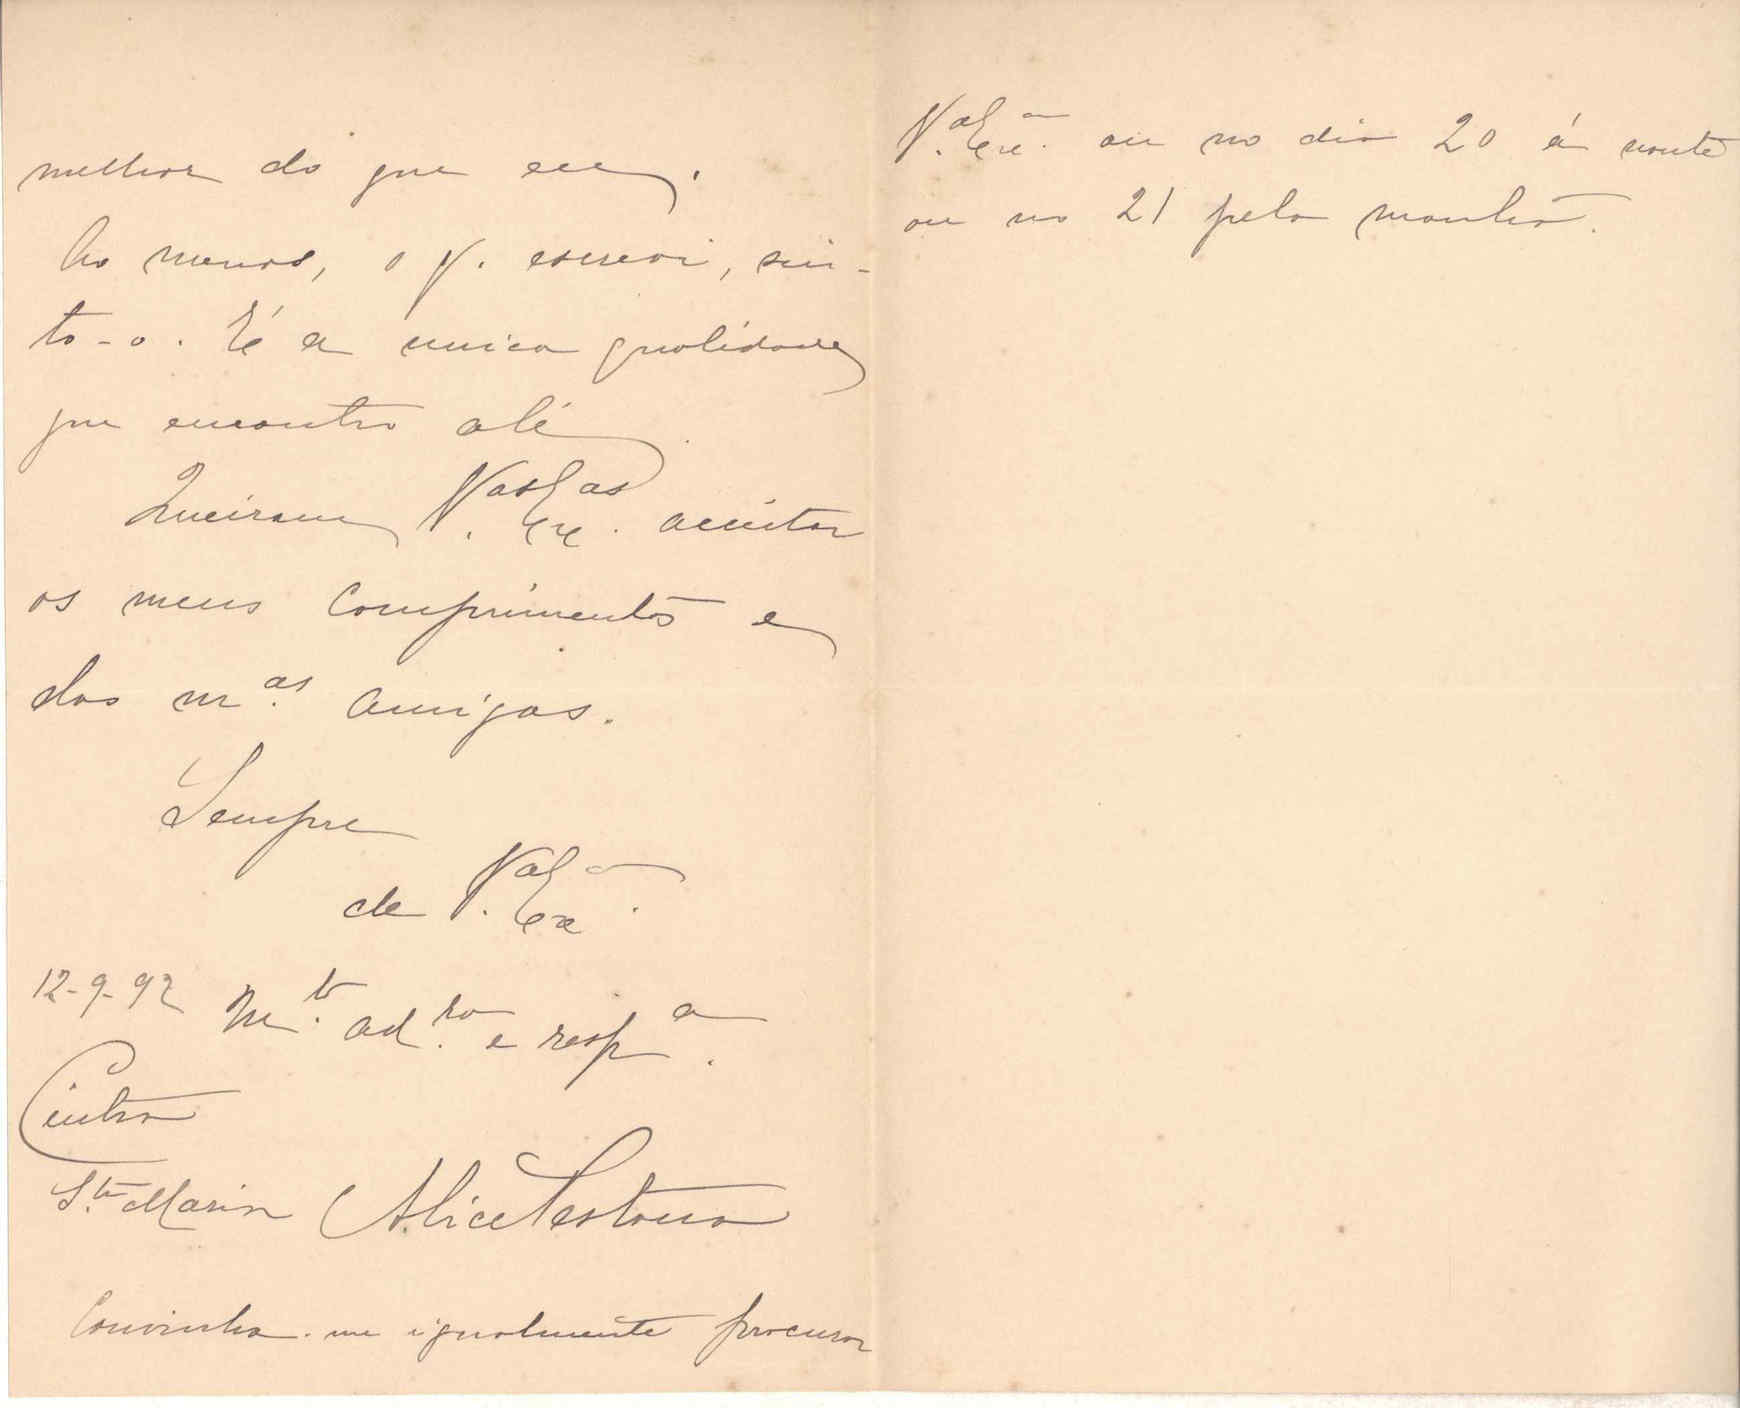 melhor do que eu.
Ao menos, o q. escrevi, sin-
to-o. É a unica qualidade
que encontro ali
Queiram V.as Ex.as aceitar
os meus comprimentos e
das m.as amigas.
Sempre
de V.a Ex.a
12-9-92 M.to ad.ra e resp.a
Cintra
S.ta Maria Alice Pestana
Convinha-me igualmente procurar
V.a Ex.a ou no dia 20 á noute
ou no 21 pela manhã.